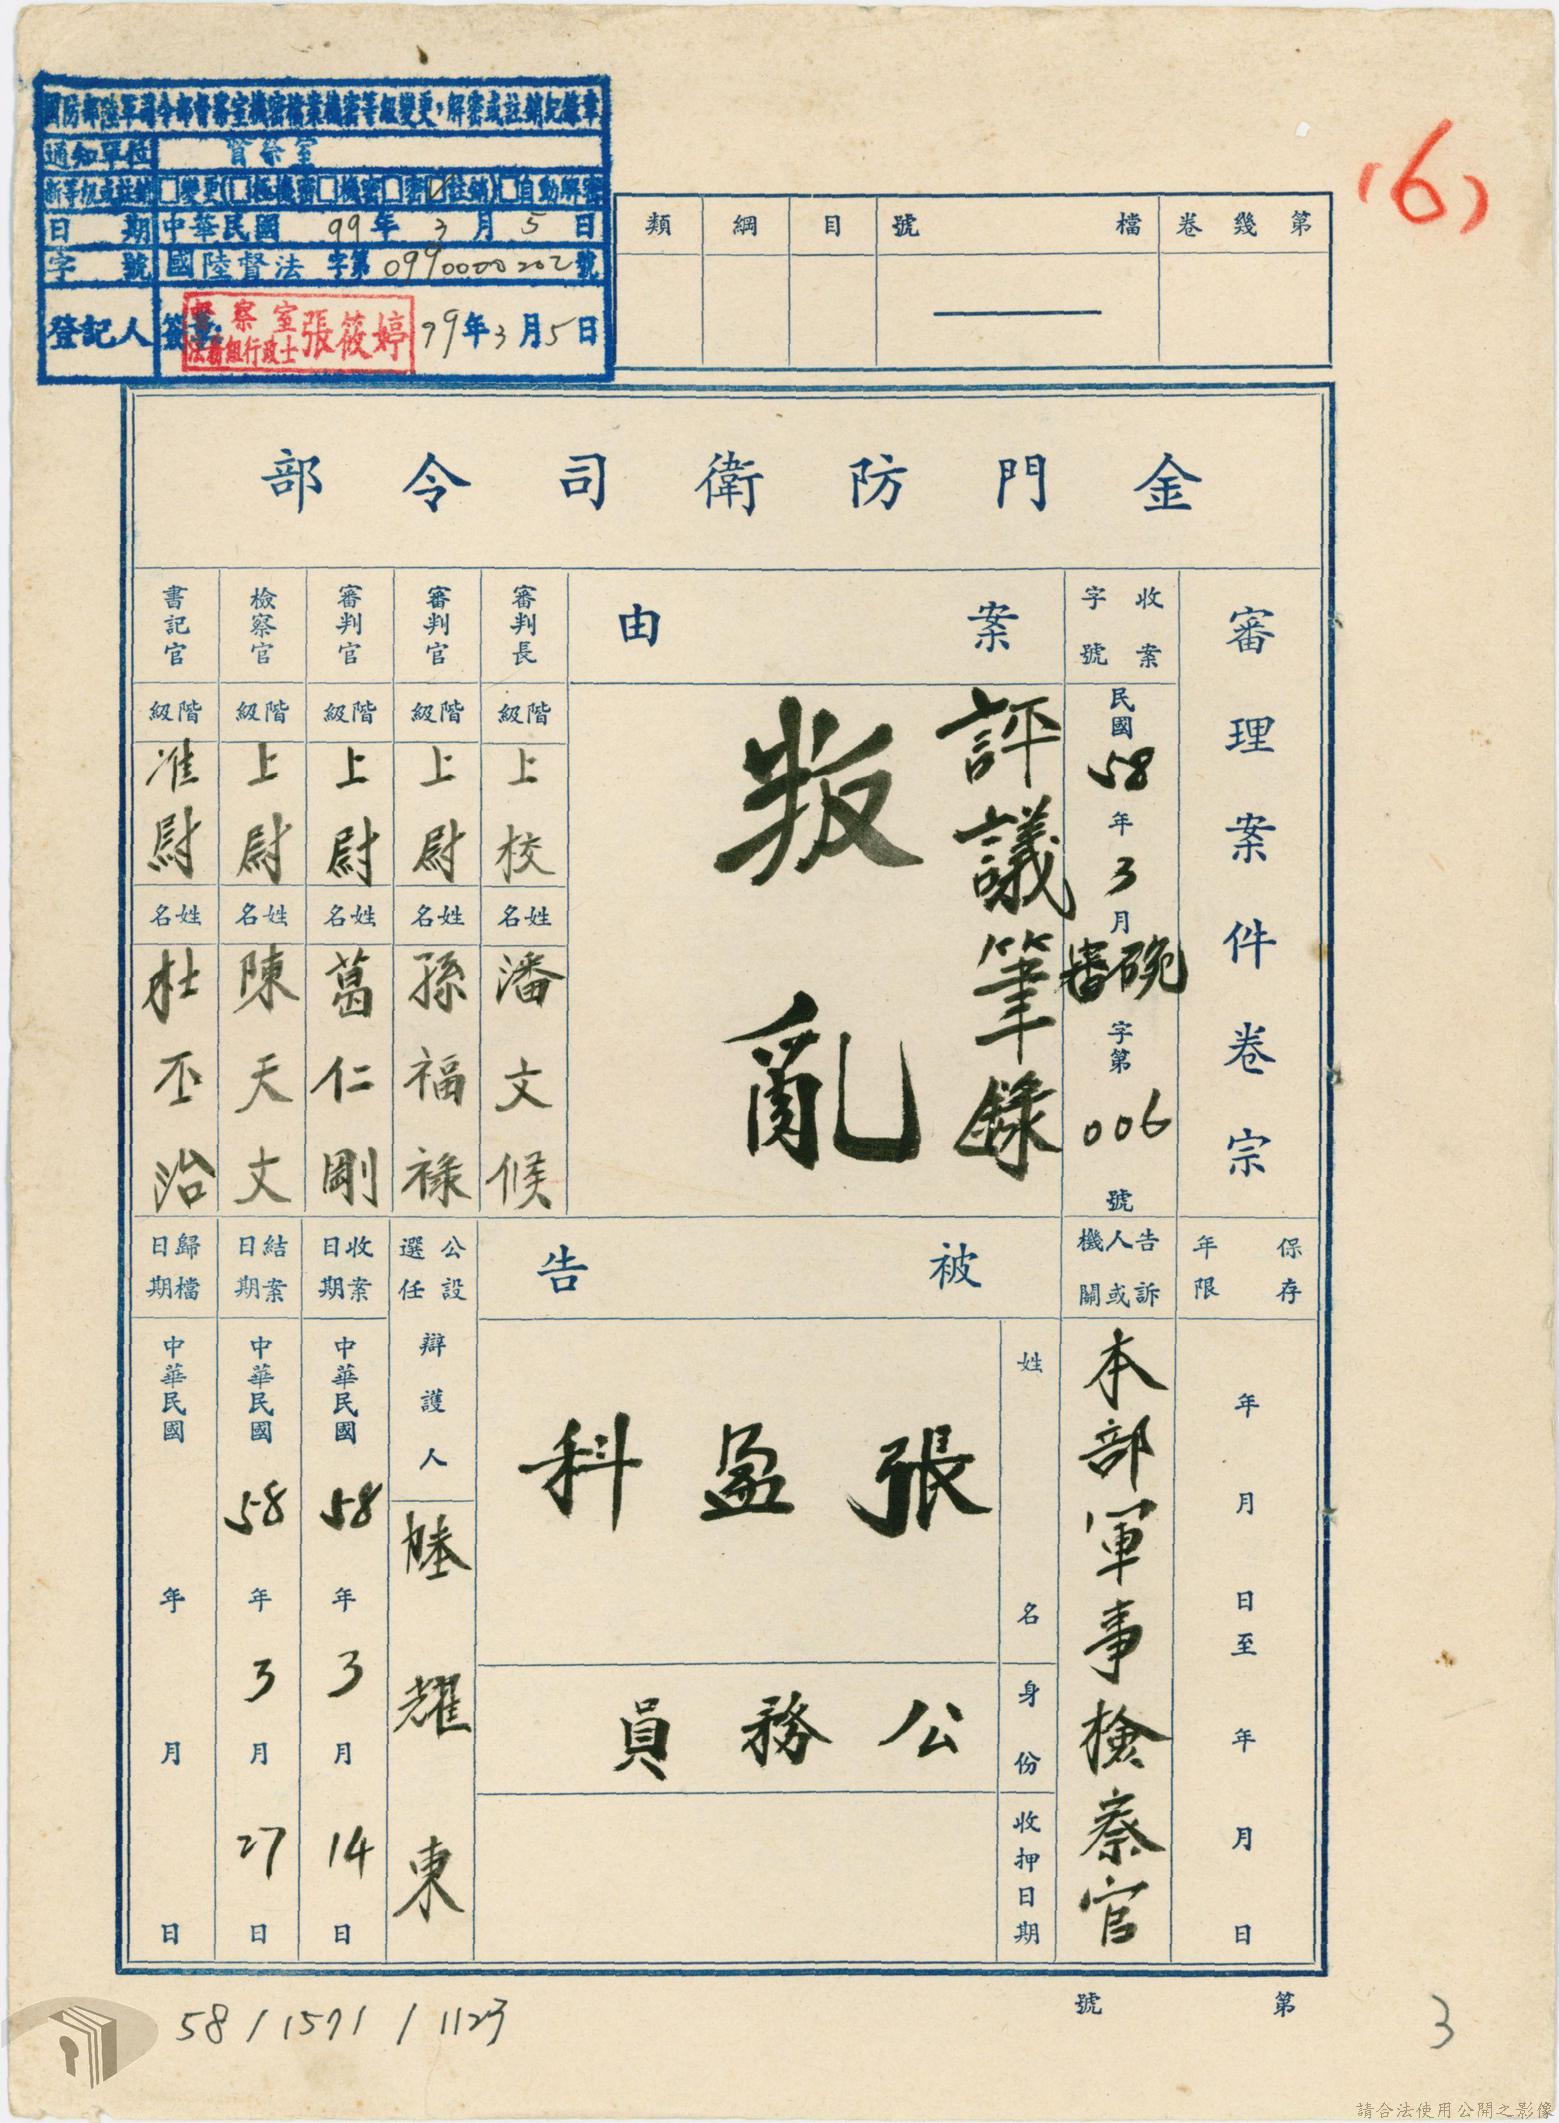 國防部陸軍司令部督察室機密檔案機密等級變更、解密或註銷紀錄章
通知單位 督察室
新等級或註銷 □變更(□極機密□機密□密☑註銷)□自動解密
日期 中華民國 99年3月5日
字號 國陸督法字第0990000202號
登記人 簽章: 99年3月5日
督察室
法務組行政士 張筱婷
(6)
第幾卷 檔號 目 綱 類
金門防衛司令部
審理案件卷宗
收案字號
民國58年3月
碗審字第006號
案由
評議筆錄
叛亂
審判長 階級 上校 姓名 潘文候
審判官 階級 上尉 姓名 孫福祿
審判官 階級 上尉 姓名 葛仁剛
檢察官 階級 上尉 姓名 陳天文
書記官 階級 准尉 姓名 杜丕治
保存年限
年月日至年月日
告訴人或機關
本部軍事檢察官
被告
姓名 張盈科
身份 公務員
收押日期
公設選任辯護人 陸耀東
收案日期 中華民國58年3月14日
結案日期 中華民國58年3月27日
歸檔日期 中華民國 年 月 日
第 號
58/1571/1123
3
請合法使用公開之影像